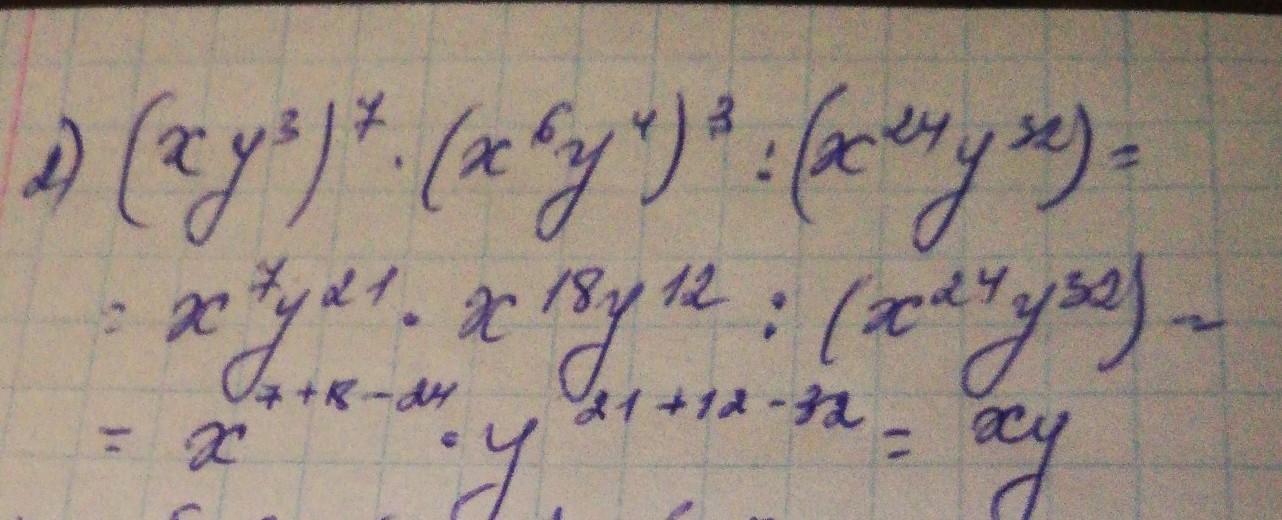 2) (xy³)⁷ · (x⁶y⁴)³ : (x²⁴y³²) =
= x⁷y²¹ · x¹⁸y¹² : (x²⁴y³²) =
= x⁷⁺¹⁸⁻²⁴ · y²¹⁺¹²⁻³² = xy